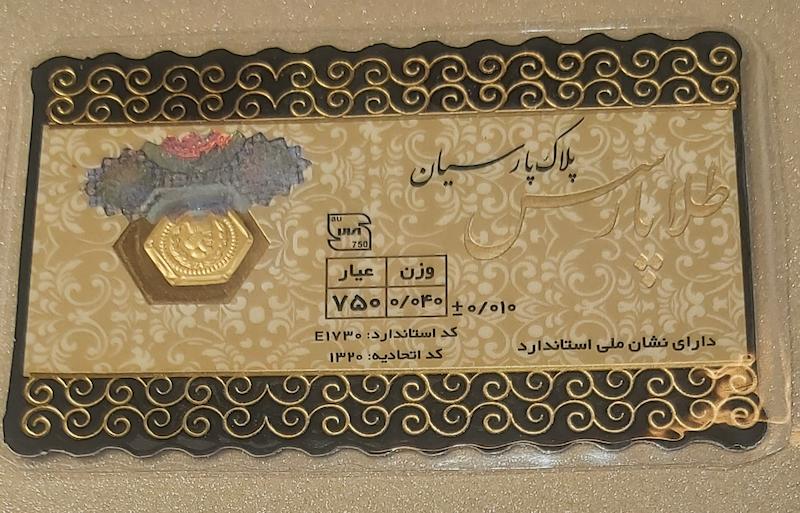 پلاک پارسیان
طلا پارسس
au
750
وزن عیار
۰/۰۴۰ ۷۵۰
±۰/۰۱۰
کد استاندارد: E۱۷۳۰
کد اتحادیه: ۱۳۲۰
دارای نشان ملی استاندارد